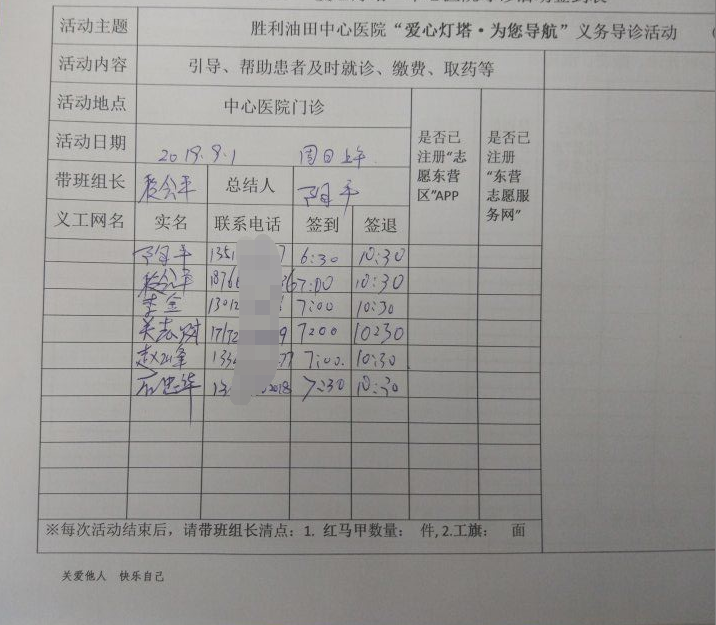 活动主题 胜利油田中心医院“爱心灯塔·为您导航”义务导诊活动
活动内容 引导、帮助患者及时就诊、缴费、取药等
活动地点 中心医院门诊 是否已注册“志愿东营区”APP 是否已注册“东营志愿服务网”
活动日期 2019.9.1 周日上午
带班组长 总结人
义工网名 实名 联系电话 签到 签退
1351 7 6:30 10:30
1876 36 7:00 10:30
李金 13012 7:00 10:30
9 7:00 10:30
133 77 7:00. 10:30
13 2018 7:30 10:30
※每次活动结束后，请带班组长清点：1. 红马甲数量： 件, 2.工旗： 面
关爱他人 快乐自己